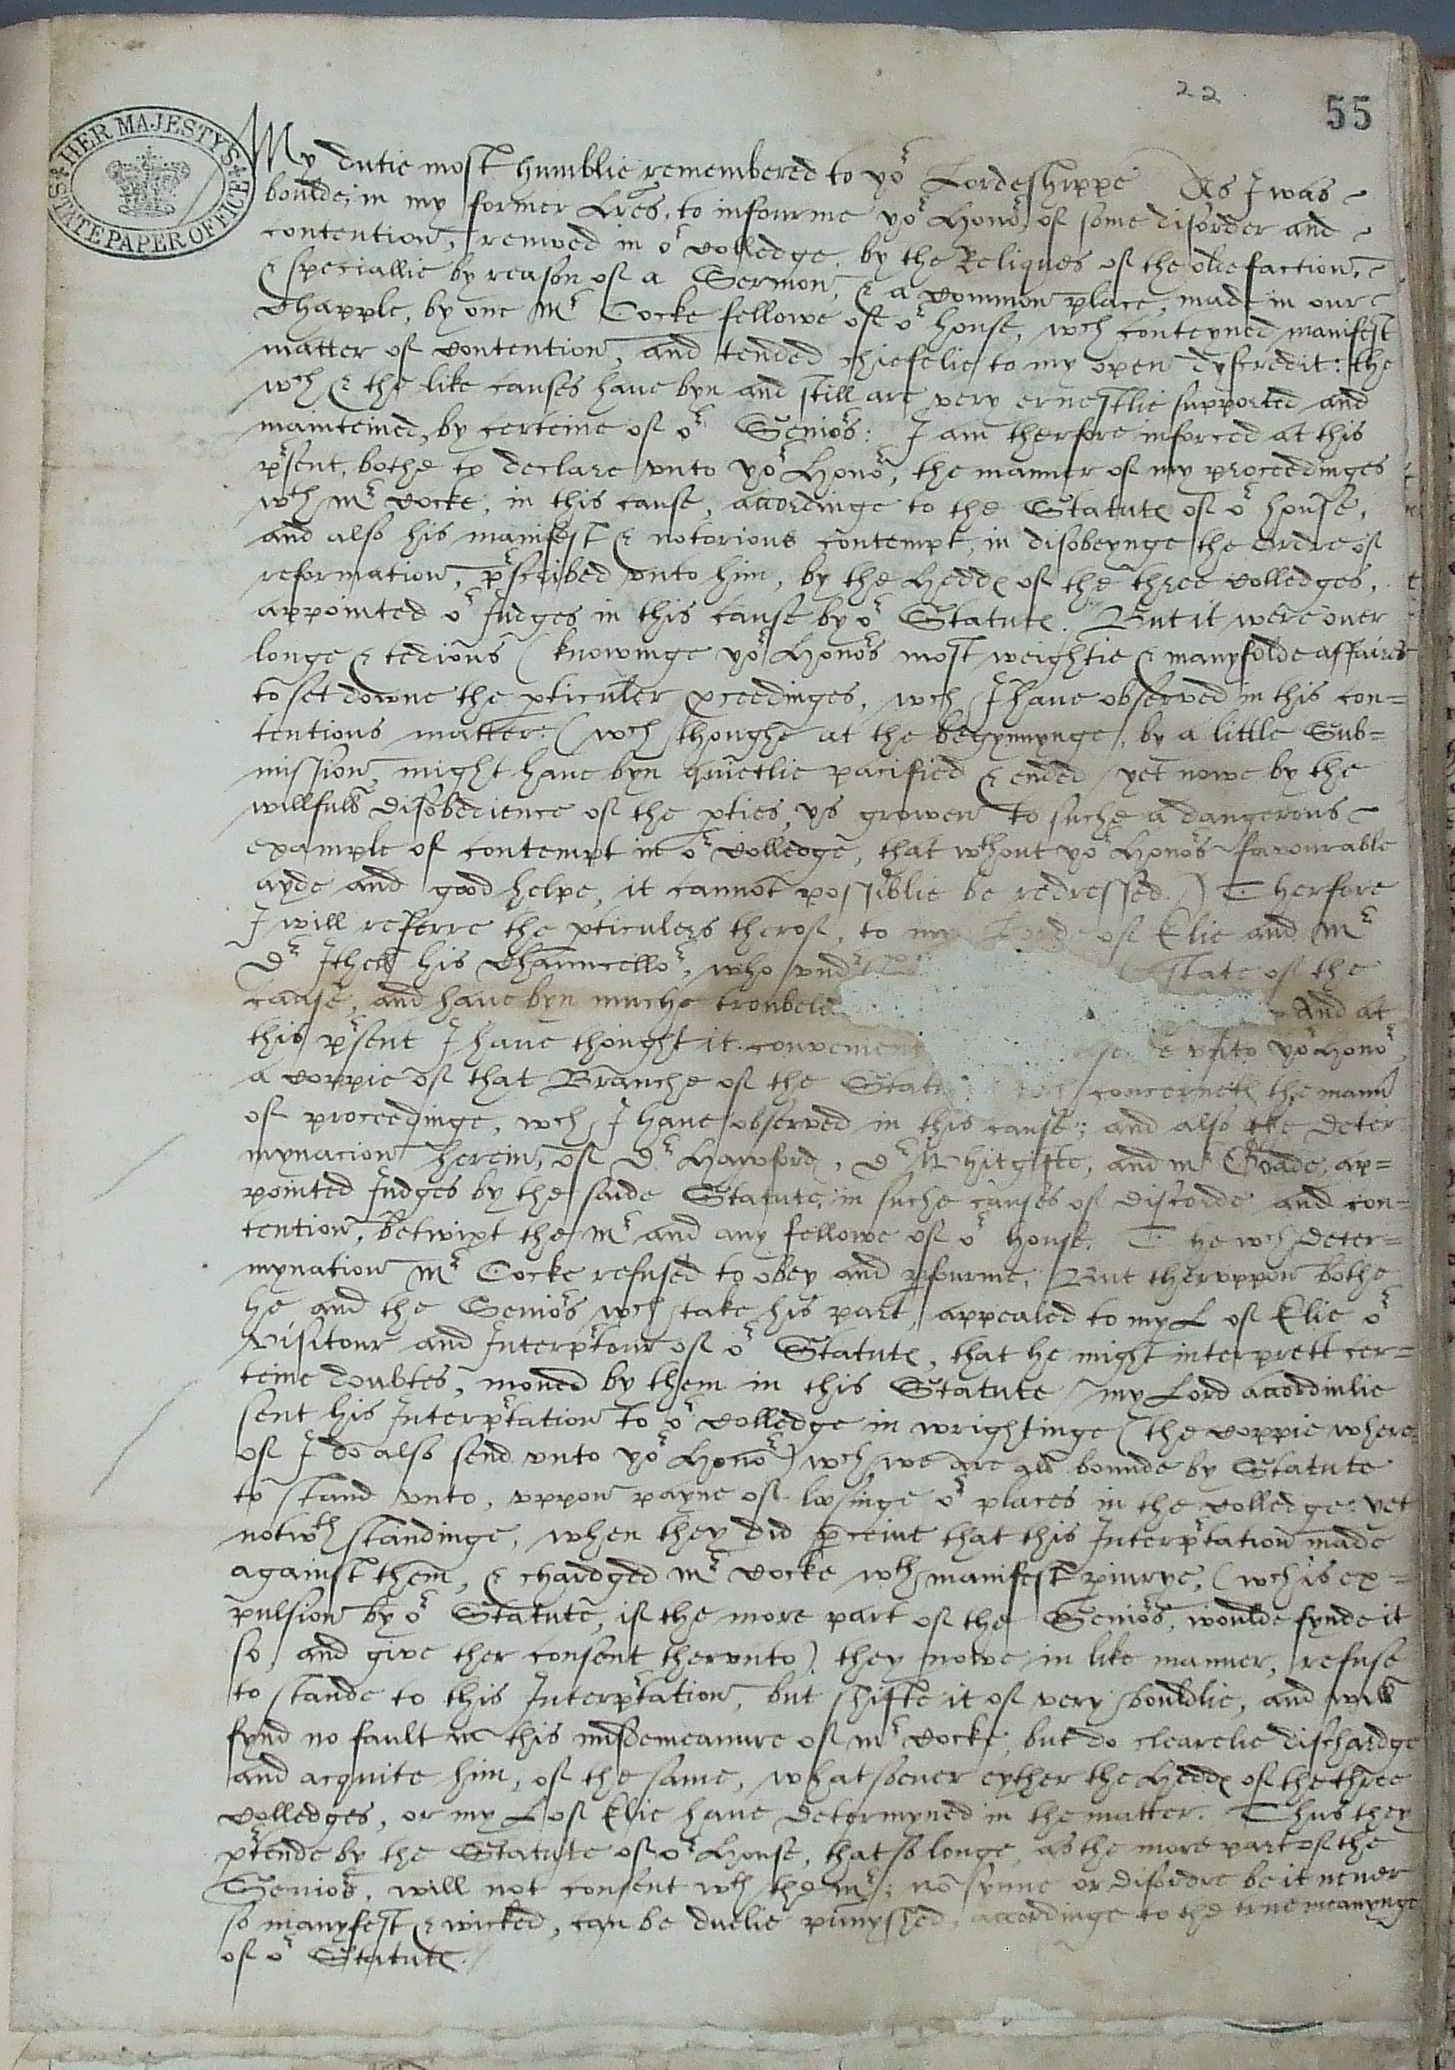 22
55
HER MAJESTY'S STATE PAPER OFFICE
My dutie most humblie remembered to yor Lordeshippe As I was
boulde, in my former Lres, to infourme yor Honor of some disorder and
contention, renued in or Colledge, by the Reliques of the olde faction,
& speciallie by reason of a Sermon, & a common place, made in our
Chapple, by one Mr Cocke fellowe of or house, wch conteyned manifest
matter of contention, and tended chiefelie to my open dyscredit: the
wch & the like causes have byn and still are very ernestlie supported and
mainteined, by certeine of or Seniors: I am therfore inforced at this
prsent, bothe to declare unto yor Honor, the manner of my proceedinges
wth Mr Cocke, in this cause, accordinge to the Statutes of or house,
and also his manifest & notorious contempt, in disobeynge the ordre of
reformation, prscribed unto him, by the Heddes of the three Colledges,
appointed or Judges in this cause by or Statute. But it were over
longe & tedious (knowinge yor Honors most weightie & manyfolde affaires
to set downe the pticuler pceedinges, wch I have observed in this con=
tentious matter: (wch thoughe at the begynnynge, by a little Sub=
mission, might have byn quietlie pacified & ended yet nowe by the
willfull disobedience of the pties, ys growen to suche a dangerous
example of contempt in or Colledge, that wthout yor Honors favourable
ayde and good helpe, it cannot possiblie be redressed.) Therfore
I will referre the pticulers therof, to my Lord of Elie and Mr
Dr Ithell his Chauncellor, who state of the
cause, and have byn muche And at
this prsent I have thought it unto yor Honor,
a coppie of that Branche of the wch concerneth the mannr
of proceedinge, wch I have observed in this cause; and also the deter
mynacion herein, of Dr Hawford, Dr Whitgifte, and mr Goade, ap=
pointed Judges by the saide Statute, in suche causes of discorde and con=
tention, betwixt the Mr and any fellowe of or house. The wch deter=
mynation Mr Cocke refused to obey and pfourme, But theruppon bothe
he and the Seniors wch take his part, appealed to my L of Elie or
Visitour and Interprtour of or Statutes, that he might interprett cer=
teine doubtes, moved by them in this Statute my Lord accordinlie
sent his Interprtation to or Colledge in wrightinge (the coppie where
of I do also send unto yor Honor) wch we are all bounde by Statute
to stand unto, uppon payne of losinge or places in the Colledge: yet
notwthstandinge, when they did pceive that this Interprtation made
against them, & chardged Mr Cocke wth manifest piurye, (wch is ex=
pulsion by or Statute, if the more part of the Seniors, woulde fynde it
so, and give ther consent therunto) they nowe in like manner, refuse
to stande to this Interprtation, but shifte it of very bouldlie, and will
fynd no fault in this misdemeanure of Mr Cocke, but do clearelie dischardge
and acquite him, of the same, whatsoever eyther the Heddes of the three
Colledges, or my L of Elie have determyned in the matter. Thus they
prtende by the Statute of or House, that so longe, as the more part of the
Seniors, will not consent wth the mr; no synne or disordre be it never
so manyfest & wicked, can be duelie punyshed, accordinge to the true meanynge
of or Statutes.